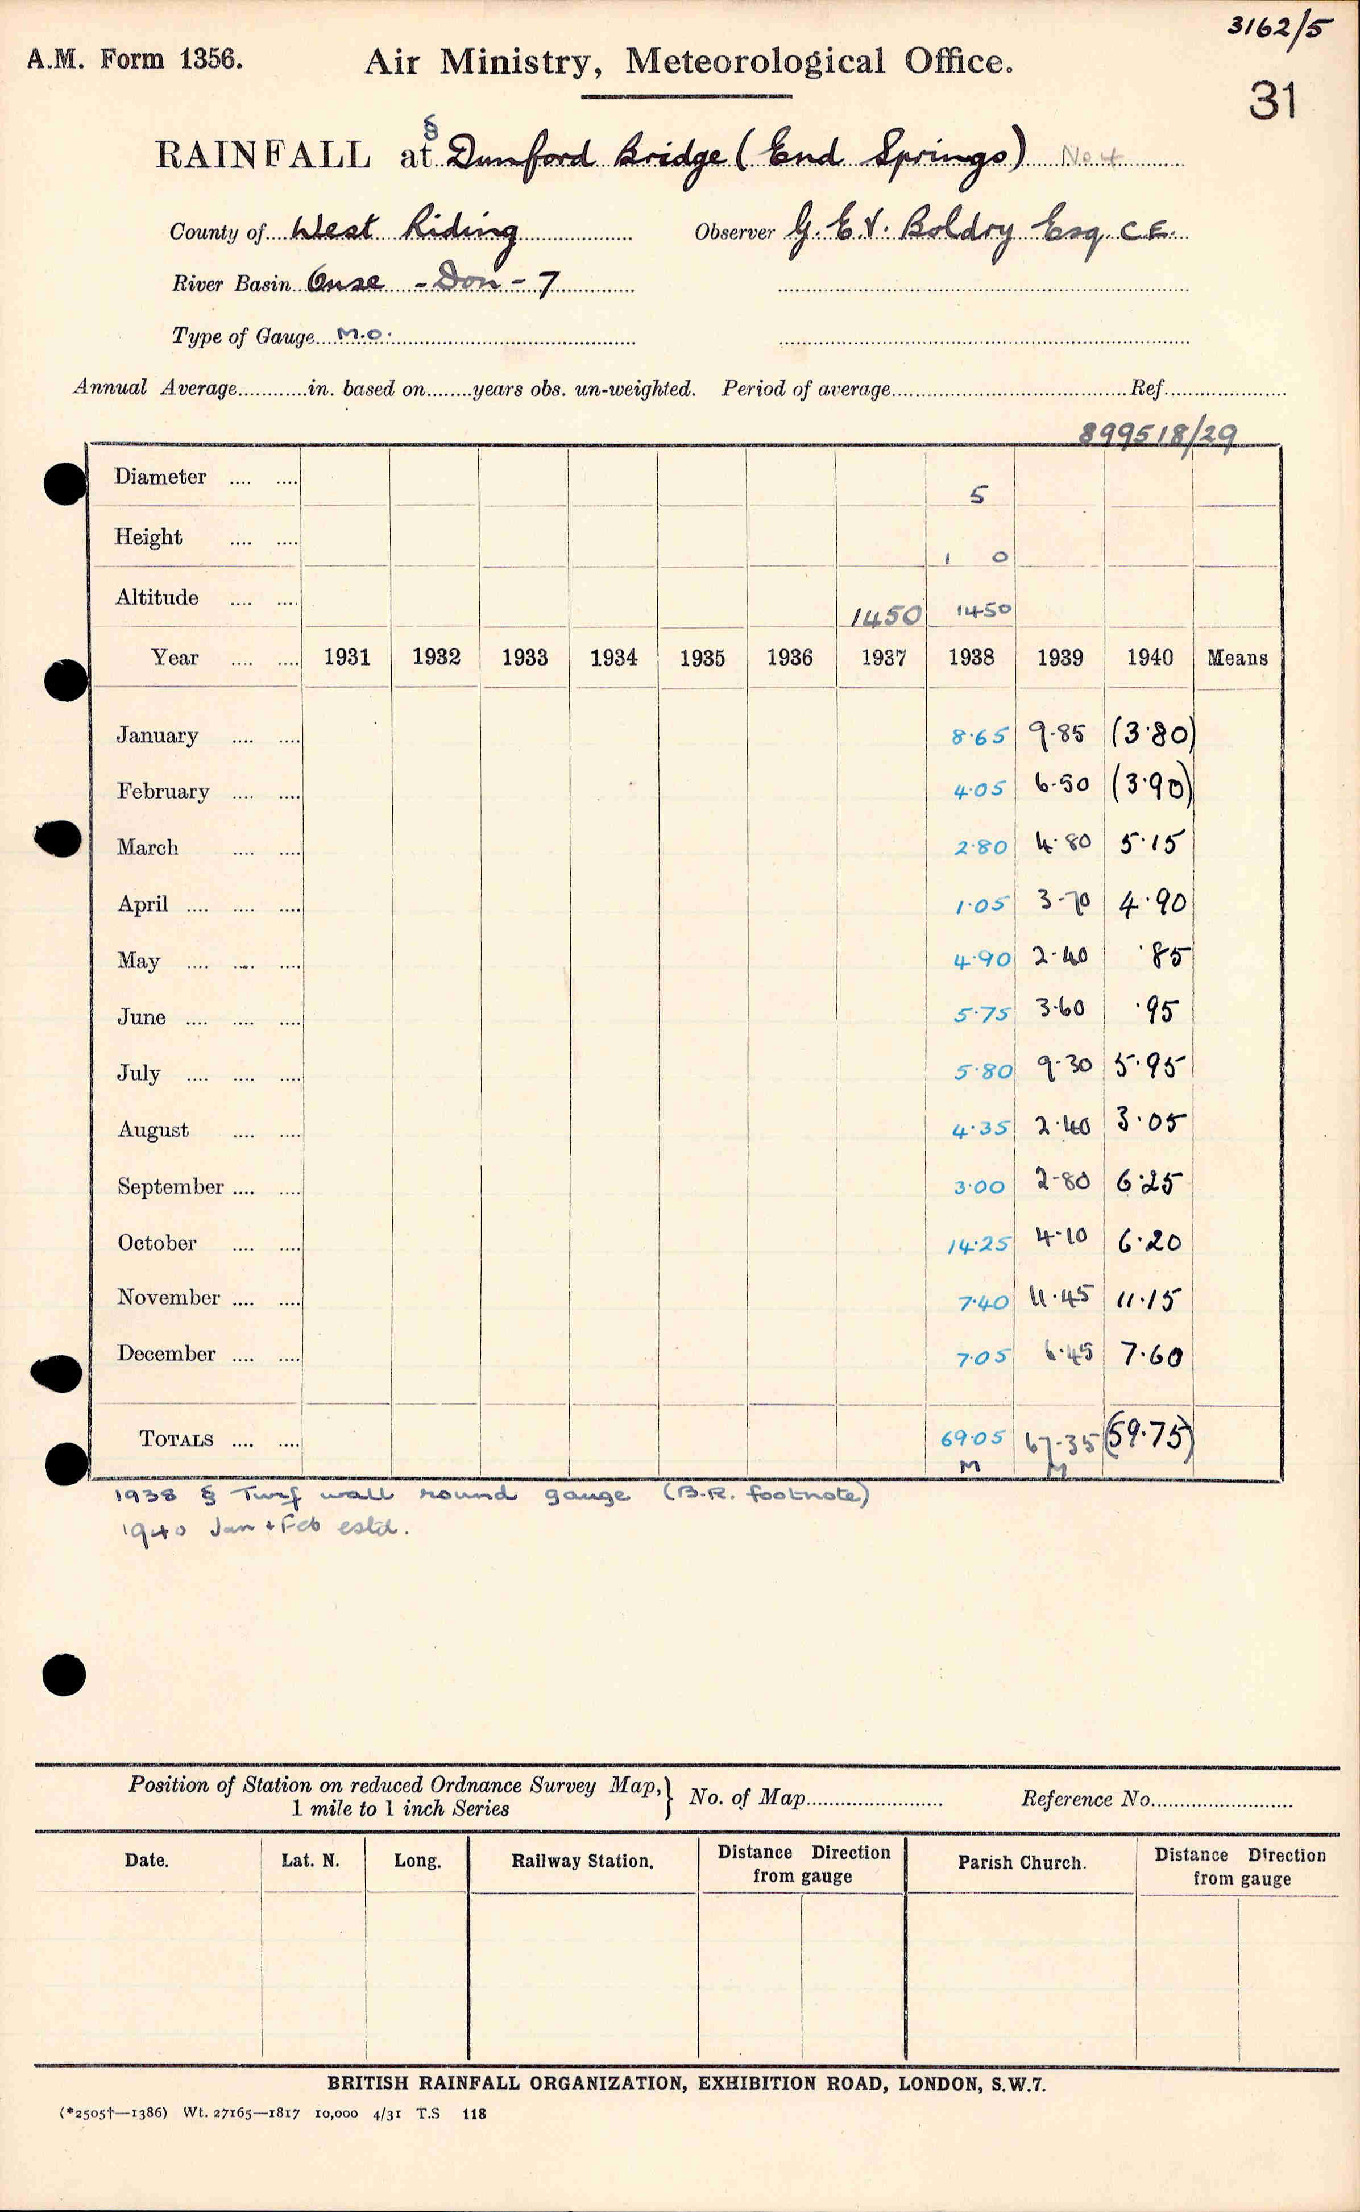 3162/5
A.M. Form 1356. Air Ministry, Meteorological Office.
31
RAINFALL at § Dunford Bridge (End Springs) No 4
County of West Riding Observer G. E. V. Boldry Esq. C.E.
River Basin Ouse - Don - 7
Type of Gauge M.O.
Annual Average............in. based on........years obs. un-weighted. Period of average........................................Ref.....................
899518/29
Diameter .... .... 5
Height .... .... 1 0
Altitude .... .... 1450 1450
Year .... .... 1931 1932 1933 1934 1935 1936 1937 1938 1939 1940 Means
January .... .... 8.65 9.85 (3.80)
February .... .... 4.05 6.50 (3.90)
March .... .... 2.80 4.80 5.15
April .... .... .... 1.05 3.70 4.90
May .... .... .... 4.90 2.40 .85
June .... .... .... 5.75 3.60 .95
July .... .... .... 5.80 9.30 5.95
August .... .... 4.35 2.40 3.05
September .... .... 3.00 2.80 6.25
October .... .... 14.25 4.10 6.20
November .... .... 7.40 11.45 11.15
December .... .... 7.05 6.45 7.60
TOTALS .... .... 69.05 67.35 (59.75)
M M
1938 § Turf wall round gauge (B.R. footnote)
1940 Jan + Feb estd.
Position of Station on reduced Ordnance Survey Map, } No. of Map........................ Reference No.........................
1 mile to 1 inch Series
Date. Lat. N. Long. Railway Station. Distance Direction from gauge Parish Church. Distance Direction from gauge
BRITISH RAINFALL ORGANIZATION, EXHIBITION ROAD, LONDON, S.W.7.
(*2505†—1386) Wt. 27165—1817 10,000 4/31 T.S 118